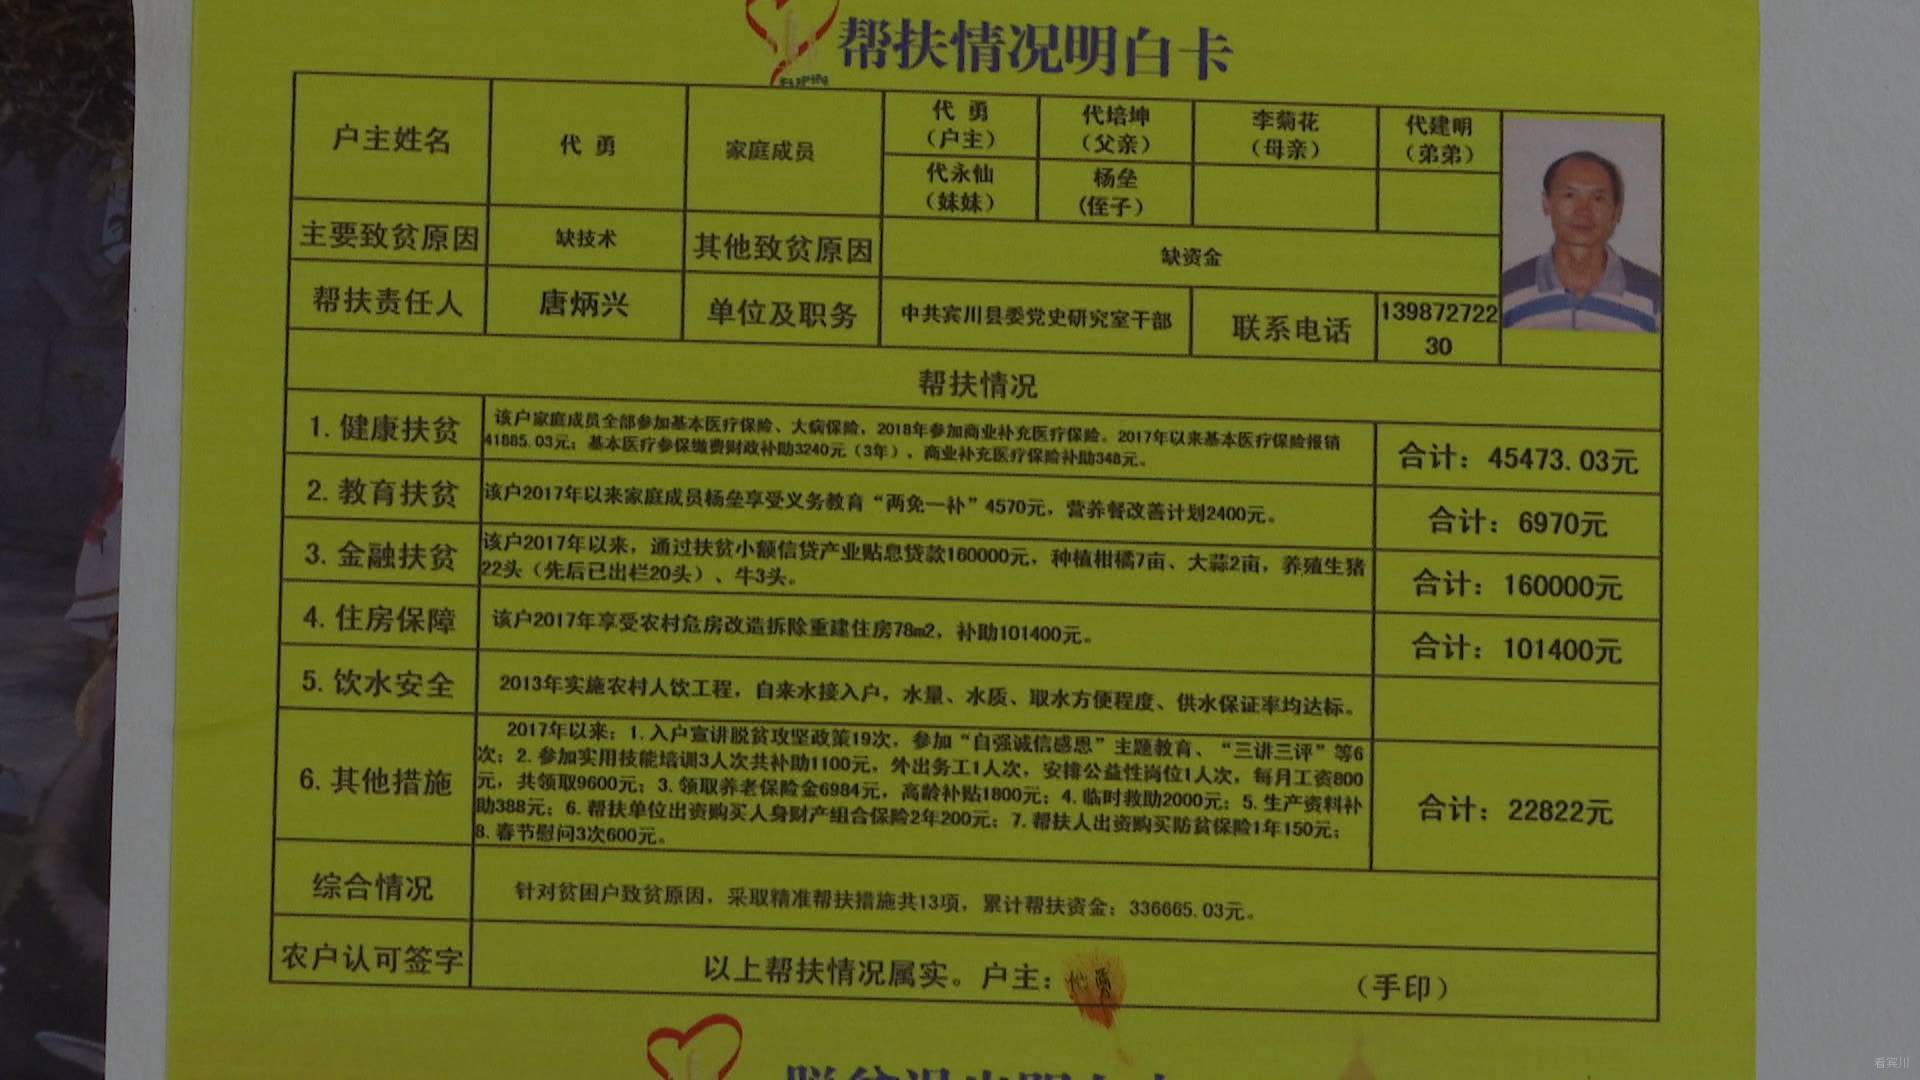 FUPIN
帮扶情况明白卡
户主姓名
代 勇
家庭成员
代 勇
（户主）
代培坤
（父亲）
李菊花
（母亲）
代建明
（弟弟）
代永仙
（妹妹）
杨垒
（侄子）
主要致贫原因
缺技术
其他致贫原因
缺资金
帮扶责任人
唐炳兴
单位及职务
中共宾川县委党史研究室干部
联系电话
139872722
30
帮扶情况
1.健康扶贫
该户家庭成员全部参加基本医疗保险、大病保险，2018年参加商业补充医疗保险。2017年以来基本医疗保险报销
41885.03元；基本医疗参保缴费财政补助3240元（3年）、商业补充医疗保险补助348元。
合计：45473.03元
2.教育扶贫
该户2017年以来家庭成员杨垒享受义务教育“两免一补”4570元，营养餐改善计划2400元。
合计：6970元
3.金融扶贫
该户2017年以来，通过扶贫小额信贷产业贴息贷款160000元，种植柑橘7亩、大蒜2亩，养殖生猪
22头（先后已出栏20头）、牛3头。
合计：160000元
4.住房保障
该户2017年享受农村危房改造拆除重建住房78m2，补助101400元。
合计：101400元
5.饮水安全
2013年实施农村人饮工程，自来水接入户，水量、水质、取水方便程度、供水保证率均达标。
6.其他措施
2017年以来：1.入户宣讲脱贫攻坚政策19次，参加“自强诚信感恩”主题教育、“三讲三评”等6
次；2.参加实用技能培训3人次共补助1100元，外出务工1人次，安排公益性岗位1人次，每月工资800
元，共领取9600元；3.领取养老保险金6984元，高龄补贴1800元；4.临时救助2000元；5.生产资料补
助388元；6.帮扶单位出资购买人身财产组合保险2年200元；7.帮扶人出资购买防贫保险1年150元；
8.春节慰问3次600元。
合计：22822元
综合情况
针对贫困户致贫原因，采取精准帮扶措施共13项，累计帮扶资金：336665.03元。
农户认可签字
以上帮扶情况属实。户主：代勇
（手印）
看宾川